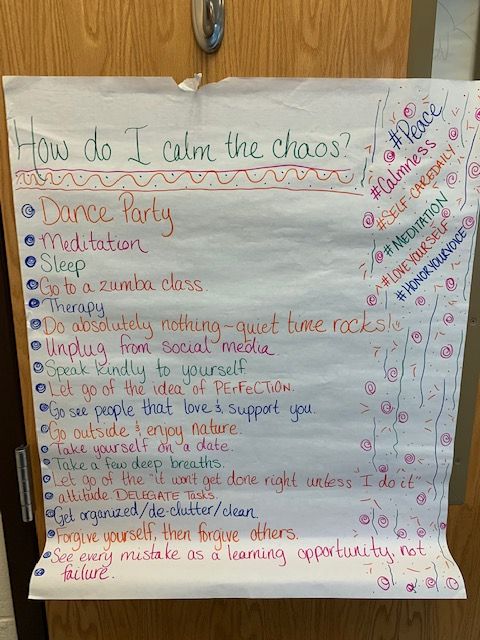 How do I calm the chaos?
Dance Party
Meditation
Sleep
Go to a zumba class
Therapy
Do absolutely nothing ~ quiet time rocks!
Unplug from social media.
Speak kindly to yourself
Let go of the idea of PERFECTION.
Go see people that love & support you.
Go outside & enjoy nature.
Take yourself on a date.
Take a few deep breaths.
Let go of the "it won't get done right unless I do it"
attitude DELEGATE TASKS.
Get organized/de-clutter/clean.
Forgive yourself, then forgive others.
See every mistake as a learning opportunity, not
failure.
#Peace
#Calmness
#SELF-CAREDAILY
#MEDITATION
#LOVEYOURSELF
#HONORYOURVOICE